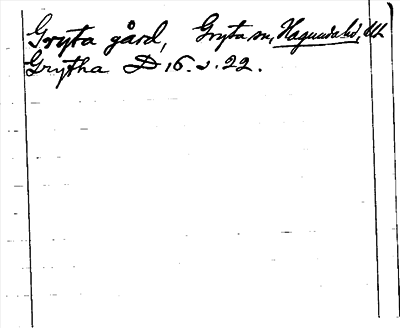 Gryta gård, Gryta sn, Hagunda hd, Upl.
Grytha D 16. s. 22.